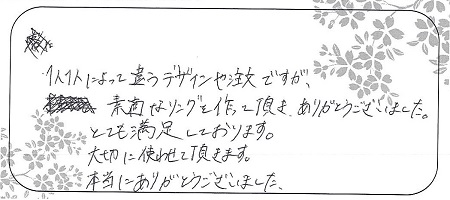 1人1人によって違うデザインや注文ですが、
素敵なリングを作って頂き、ありがとうございました。
とても満足しております。
大切に使わせて頂きます。
本当にありがとうございました。